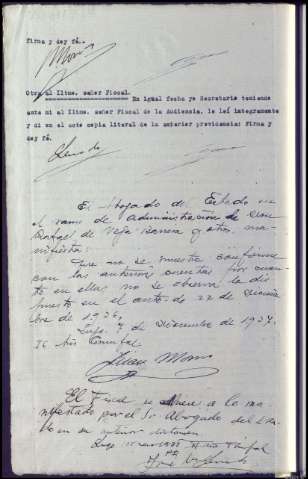 firma y doy fé.
Otra al Iltmo. señor Fiscal. En igual fecha yo Secretario teniendo
ante mi al Iltmo. señor Fiscal de la Audiencia, le leí integramente
y di en el acto copia literal de la anterior providencia: Firma y
doy fé.
El Abogado de Estado en
el ramo de administración de Don
Rafael de Vega y otro, ma-
nifiesta:
Que no se muestra conforme
con las anteriores cuentas por cuan-
to en ellas no se observa lo dis-
puesto en el auto de 22 de Diciem-
bre de 1936.
Lugo, 7 de Diciembre de 1937.
II Año Triunfal.
El Fiscal se adhiere a lo ma-
nifestado por el Sr. Abogado del Esta-
do en su anterior dictamen
Lugo